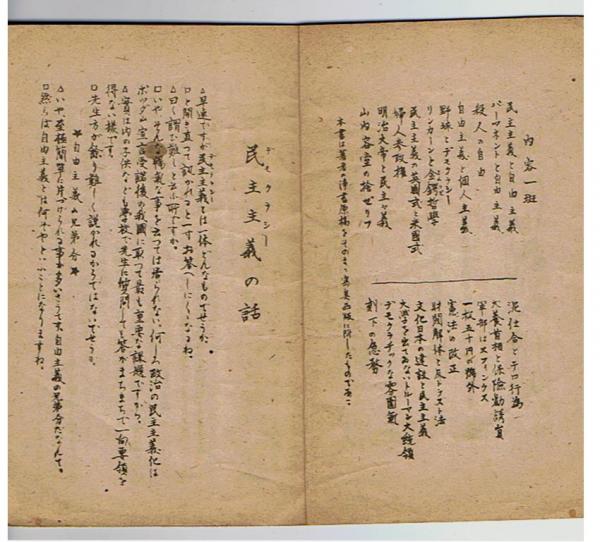 内容一班
民主主義と自由主義
パーマネントと自由主義
殺人の自由
自由主義と個人主義
野球とデモクラシー
リンカーンと金鍔哲学
民主主義の英国式と米国式
婦人参政権
明治大帝と民主々義
山内容堂の捨ゼリフ
泥仕合とテロ行為
犬養首相と保険勧誘員
軍部はスフィンクス
一枚五十円の号外
憲法の改正
財閥解体と反トラスト法
文化日本の建設と民主主義
大学を出てゐないトルーマン大統領
デモクラチックな雰囲気
刻下の急務
本書は著者の浄書原稿をそのまゝ写真版に附したものである
デモクラシー
民主主義の話
△早速ですが民主主義とは一体どんなものでせうか。
□と開き直つて訊かれると一寸お答へしにくいなるね。
△曰く謂ひ難しと云ふ所ですか。
□いや、そんな暢気な事を云つては居られない。何しろ政治の民主主義化は
ポツダム宣言受諾後の我国に取つて最も重要な課題ですから。
△実は内の子供なども学校で先生に質問しても答がまちまちで一向要領を
得ない様です。
□先生方が余り難しく説かれるからではないでせうか。
自由主義の兄弟分
△いや、至極簡単に片づけられる事が多いさうです。自由主義の兄弟分だなんて。
□然らば自由主義とは何ぞやといふことになりますね。